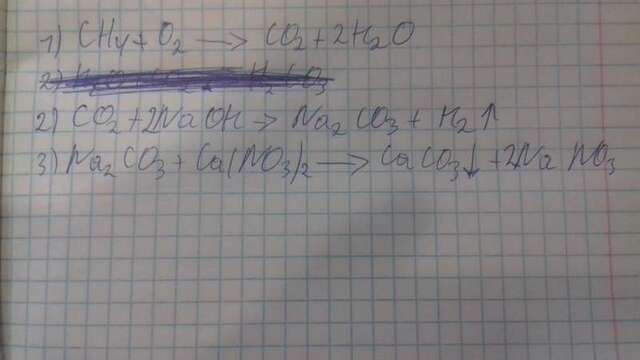 1) CH4 + O2 → CO2 + 2H2O
2) CO2 + 2NaOH → Na2CO3 + H2↑
3) Na2CO3 + Ca(NO3)2 → CaCO3↓ + 2NaNO3